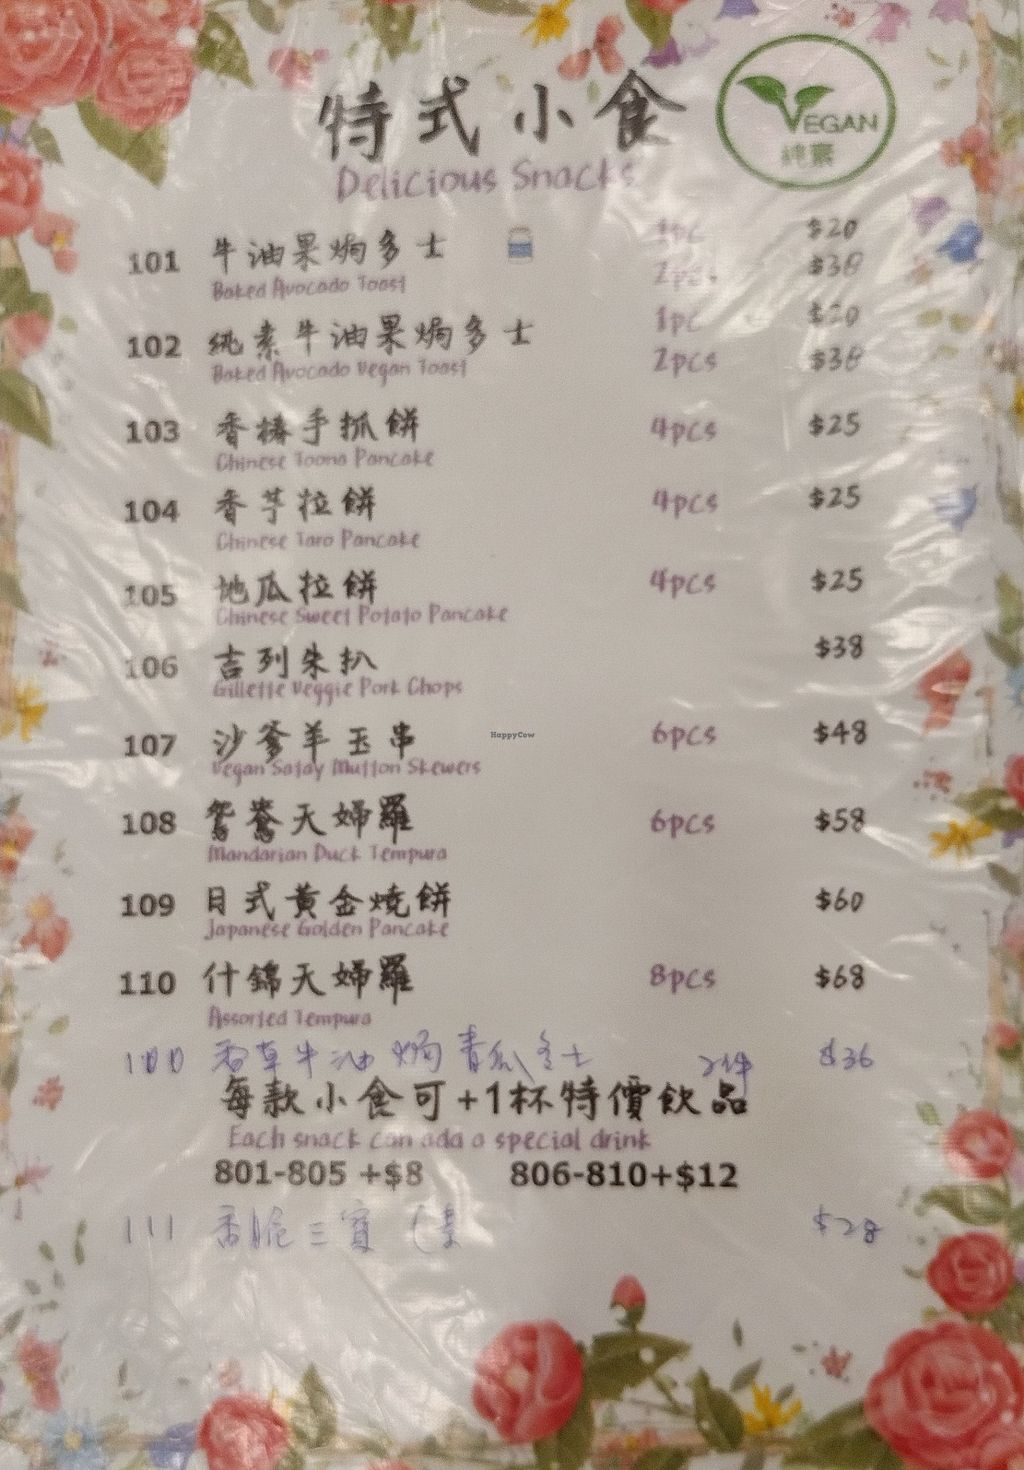 特式小食
VEGAN
純素
Delicious Snacks
101 牛油果焗多士 1pc $20
Baked Avocado Toast 2pcs $38
102 純素牛油果焗多士 1pc $20
Baked Avocado Vegan Toast 2pcs $38
103 香椿手抓餅 4pcs $25
Chinese Toona Pancake
104 香芋拉餅 4pcs $25
Chinese Taro Pancake
105 地瓜拉餅 4pcs $25
Chinese Sweet Potato Pancake
106 吉列朱扒 $38
Gillette Veggie Pork Chops
107 沙爹羊玉串 6pcs $48
Vegan Satay Mutton Skewers
HappyCow
108 鴛鴦天婦羅 6pcs $58
Mandarian Duck Tempura
109 日式黃金燒餅 $60
Japanese Golden Pancake
110 什錦天婦羅 8pcs $68
Assorted Tempura
100 香草牛油焗青瓜多士 2件 $36
每款小食可+1杯特價飲品
Each snack can add a special drink
801-805 +$8 806-810+$12
111 香脆三寶 $28